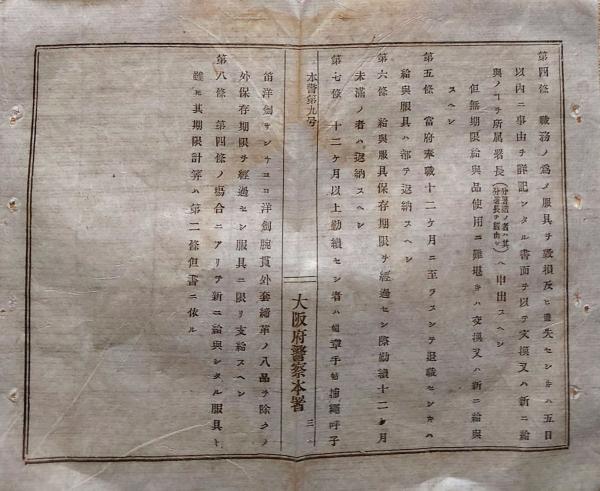 第四條 職務ノ爲メ服具ヲ毀損及ヒ遺失セシキハ五日
以内ニ事由ヲ詳記シタル書面ヲ以テ交換又ハ新ニ給
與ノヿヲ所属署長(分署詰ノ者ハ其分署長ヲ經由ス)ヘ申出スヘシ
但無期限給與品使用ニ難堪キハ交換又ハ新ニ給與
スヘシ
第五條 當府奉職十二ケ月ニ至ラスシテ退職セシキハ
給與服具ハ都テ返納スヘシ
第六條 給與服具保存期限ヲ經過セシ際勤續十二ケ月
未滿ノ者ハ返納スヘシ
本警第九号
第七條 十二ケ月以上勤續セシ者ハ帽章手帖捕繩呼子
大阪府警察本署
三
笛洋劍サシサココ洋劍腕貫外套締革ノ八品ヲ除クノ
外保存期限ヲ經過セシ服具ニ限リ支給スヘシ
第八條 第四條ノ塲合ニアリテ新ニ給與シタル服具ト
雖ヒ其期限計算ハ第二條但書ニ依ル